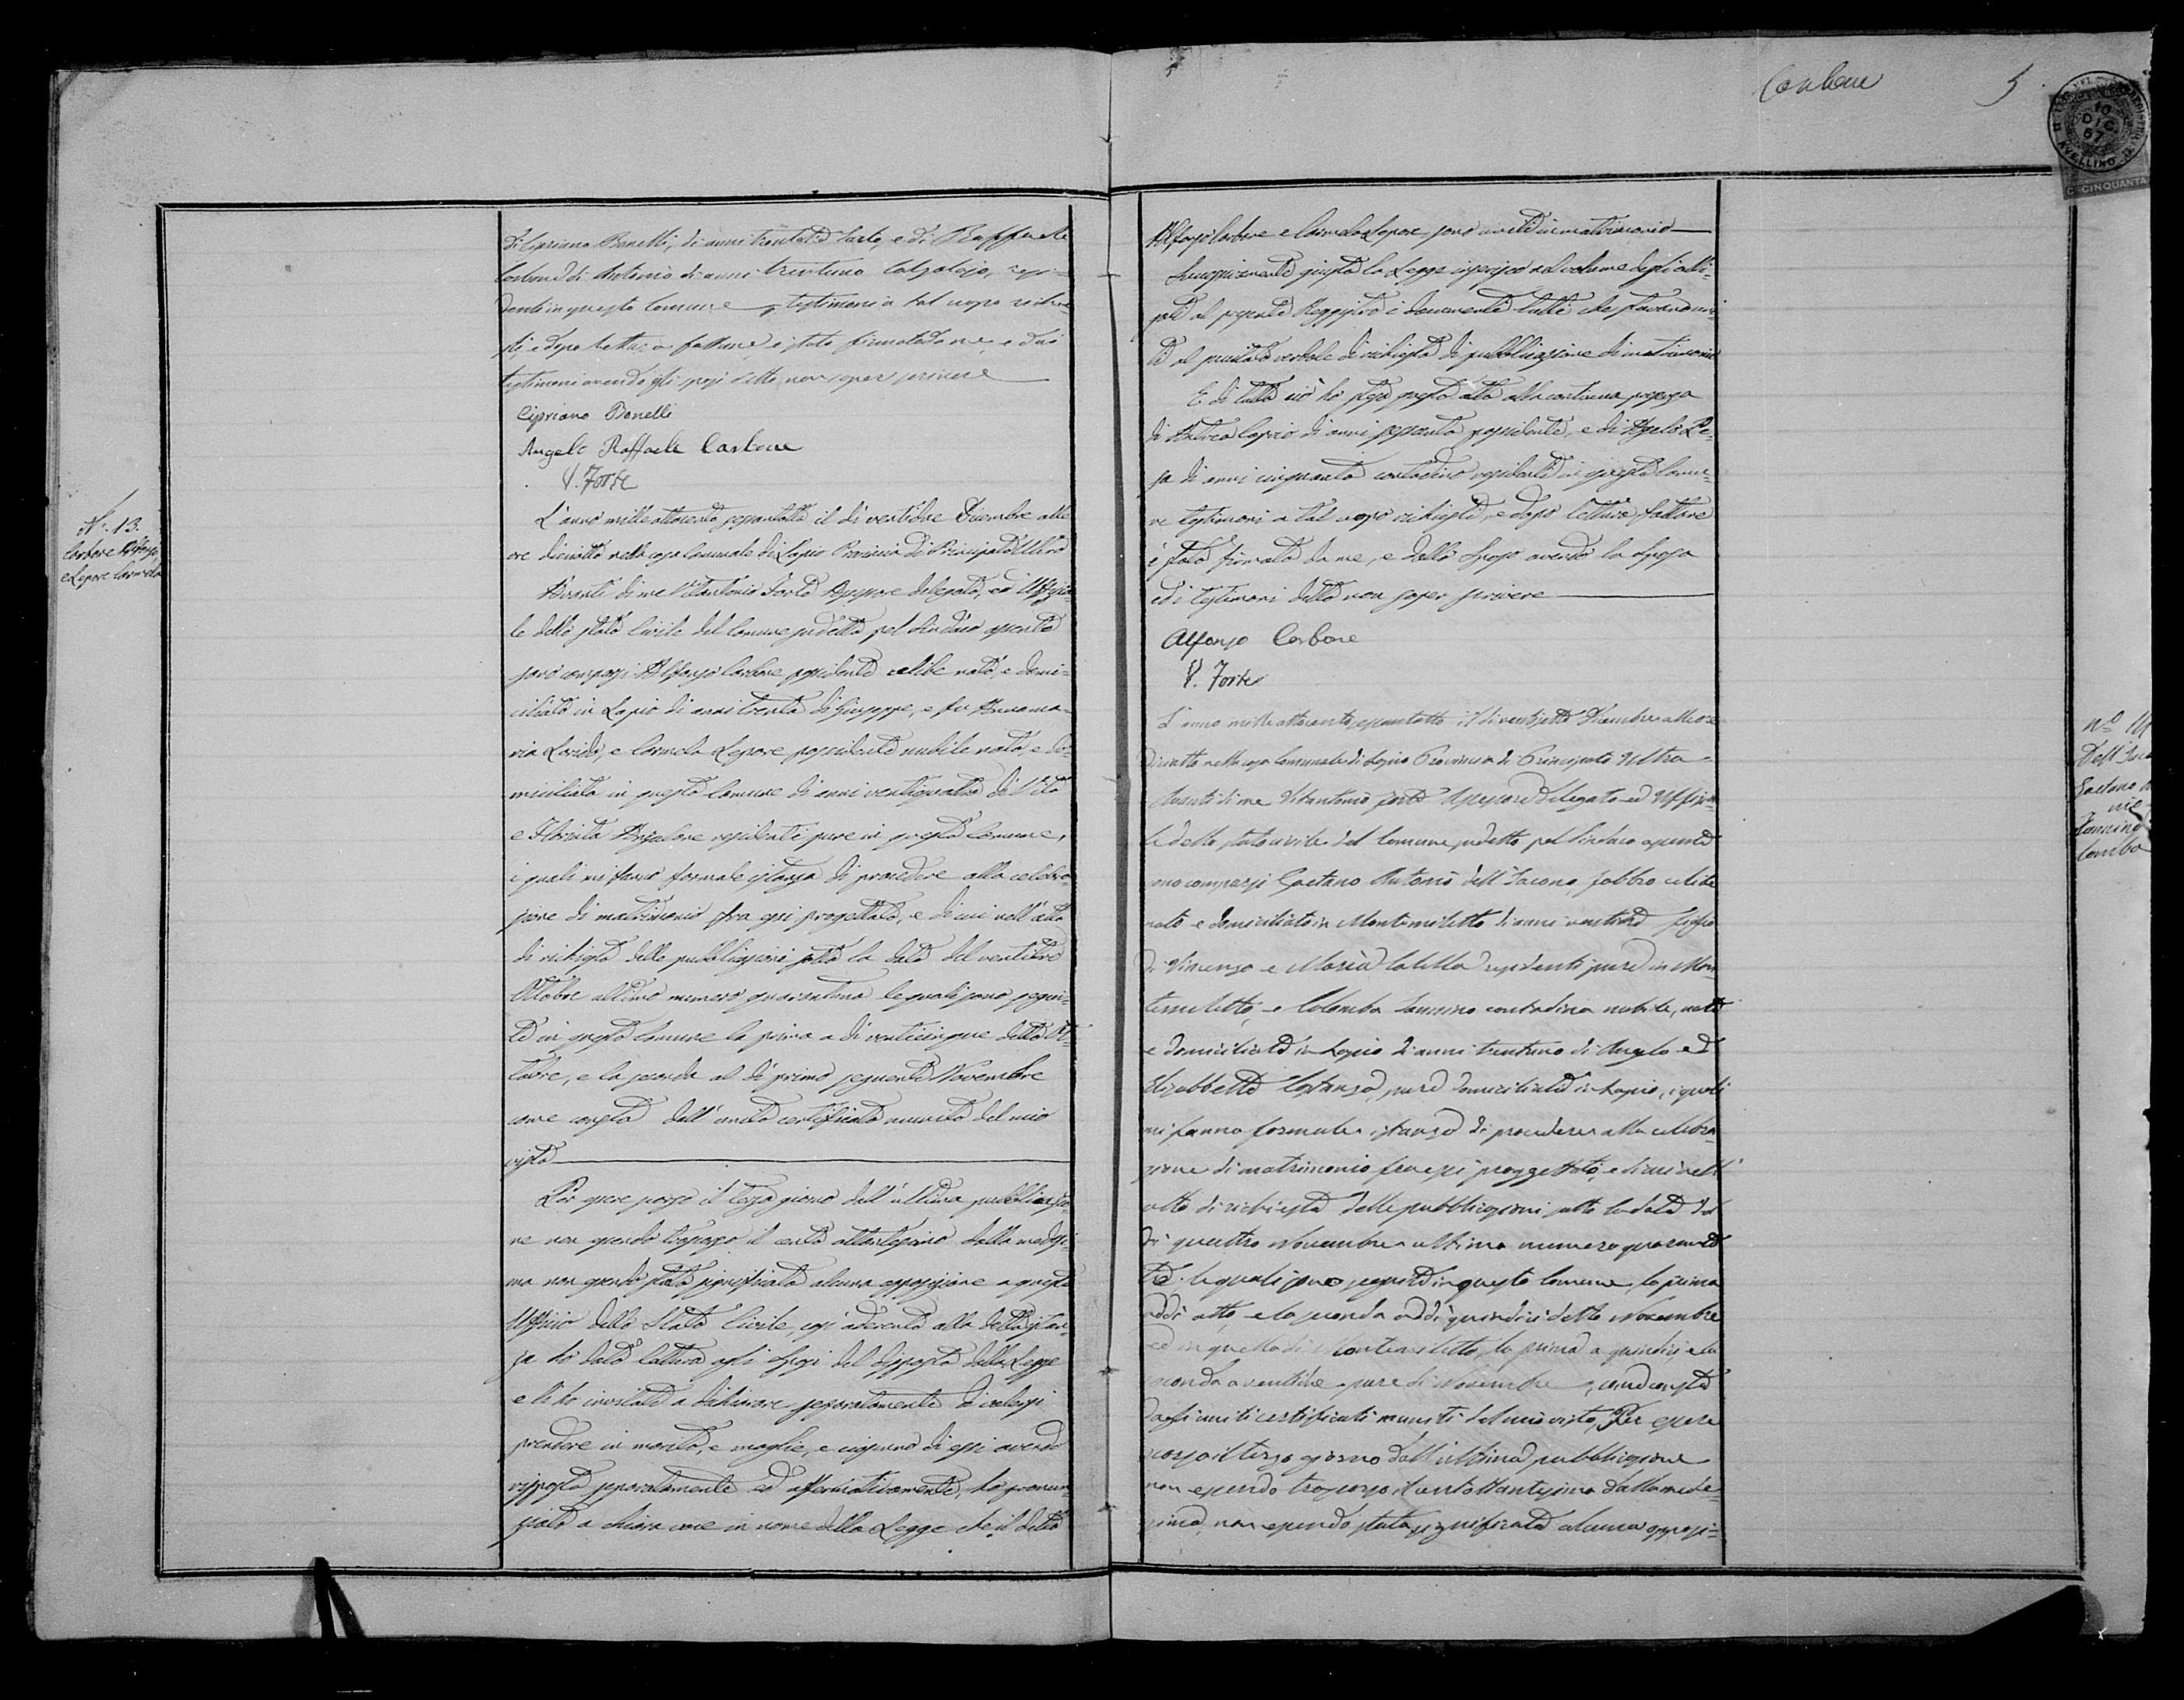 di Cipriano Bonelli, di anni trentatre Sarto, e di Raffaele
Carbone di Antonio di anni trentuno Calzolajo, resi-
denti in questo Comune, testimoni a tal uopo richie-
sti, e dopo lettura fattane, è stato firmato da me, e dai
testimoni avendo gli sposi detto non saper scrivere
Cipriano Bonelli
Angelo Raffaele Carbone
V. Forte
N.º 13.
Carbone Alfonso,
e Lepore Carmela
L'anno mille ottocento sessantotto il dì ventidue Dicembre alle
ore diciotto nella casa Comunale di Lapio Provincia di Principato Ultra
Avanti di me Vitantonio Forte Assessore delegato, ed Uffizia-
le dello stato Civile del Comune sudetto pel Sindaco assente
sono comparsi Alfonso Carbone possidente celibe nato, e domi-
ciliato in Lapio di anni trenta di Giuseppe, e fu Annama-
ria, e Carmela Lepore possidente nubile nata, e do-
miciliata in questo Comune di anni ventiquattro di Vito
e residenti pure in questo Comune,
i quali mi fanno formale istanza di procedere alla celebra-
zione di matrimonio fra essi progettato, e di cui nell'atto
di richiesta delle pubblicazioni sotto la data del ventitre
Ottobre ultimo numero quarantuno le quali sono segui-
te in questo Comune la prima a dì venticinque detto Ot-
tobre, e la seconda al dì primo seguente Novembre
come consta dall'unito certificato munito del mio
visto
Per essere scorso il terzo giorno dall'ultima pubblicazio-
ne non essendo trascorso il cento ottantesimo dalla medesi-
ma non essendo stata significata alcuna opposizione a questo
Uffizio dello Stato Civile, così aderendo alla detta istan-
za ho dato lettura agli sposi del disposto della Legge
e li ho invitati a dichiarare separatamente di volersi
prendere in marito, e moglie, e ciascuno di essi avendo
risposto separatamente ed affermativamente, ho pronun-
ziato a chiara voce in nome della Legge che il detto
Carbone 5
10
DIC
67
AVELLINO
C. CINQUANTA
Alfonso Carbone e Carmela Lepore, sono uniti in matrimonio
Susseguentemente giusta la Legge inserisco nel volume degli alli-
gati al presente Reggistro i documenti tutti che furono uni-
ti al precitato verbale di richiesta di pubblicazione di matrimonio
E di tutto ciò ho steso questo atto alla continua presenza
di Andrea Caprio di anni sessanta possidente, e di Angelo Pe-
sa di anni cinquanta contadino residenti in questo Comu-
ne testimoni a tal uopo richiesti, e dopo lettura fattane
è stato firmato da me, e dallo Sposo avendo la Sposa
ed i testimoni detto non saper scrivere
Alfonso Carbone
V. Forte
nº 14
Dell'Iaco
Gaetano A
nio
Iannino
Colomba
L'anno mille ottocento sessantotto il dì ventisette Dicembre alle ore
diciotto nella casa Comunale di Lapio Provincia di Principato Ultra
Avanti di me Vitantonio Forte Assessore delegato ed Uffizia-
le dello stato civile del Comune sudetto pel Sindaco assente
sono comparsi Gaetano Antonio dell'Iacono fabbro celibe
nato e domiciliato in Montemiletto di anni ventitre figlio
di Vincenzo e Maria Colella residenti pure in Mon
temiletto, e Colomba Iannino contadina nubile, nata
e domiciliata in Lapio di anni trentuno di Angelo ed
Elisabbetta Costanza, pure domiciliati in Lapio, i quali
mi fanno formale istanza di procedere alla celebra-
zione di matrimonio fra essi proggettato, e di cui nell'
atto di richiesta delle pubblicazioni sotto la data del
dì quattro Novembre ultimo numero quaranta
tre. le quali sono seguite in questo Comune la prima
addì otto e la seconda addì quindici detto Novembre
ed in quello di Montemiletto, la prima a quindici e la
seconda a ventidue pure di Novembre, come consta
dagli uniti certificati muniti del mio visto, Per essere
scorso il terzo giorno dall'ultima pubblicazione
non essendo trascorso il centottantesimo dalla mede-
sima, non essendo stata significata alcuna opposi-